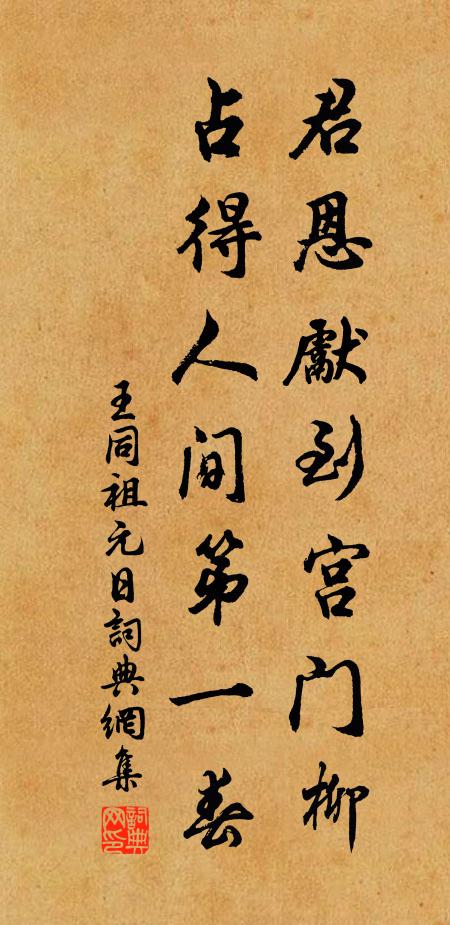 君恩獻到宮門柳
占得人间第一春
王同祖元日詞典網集
詞典網印